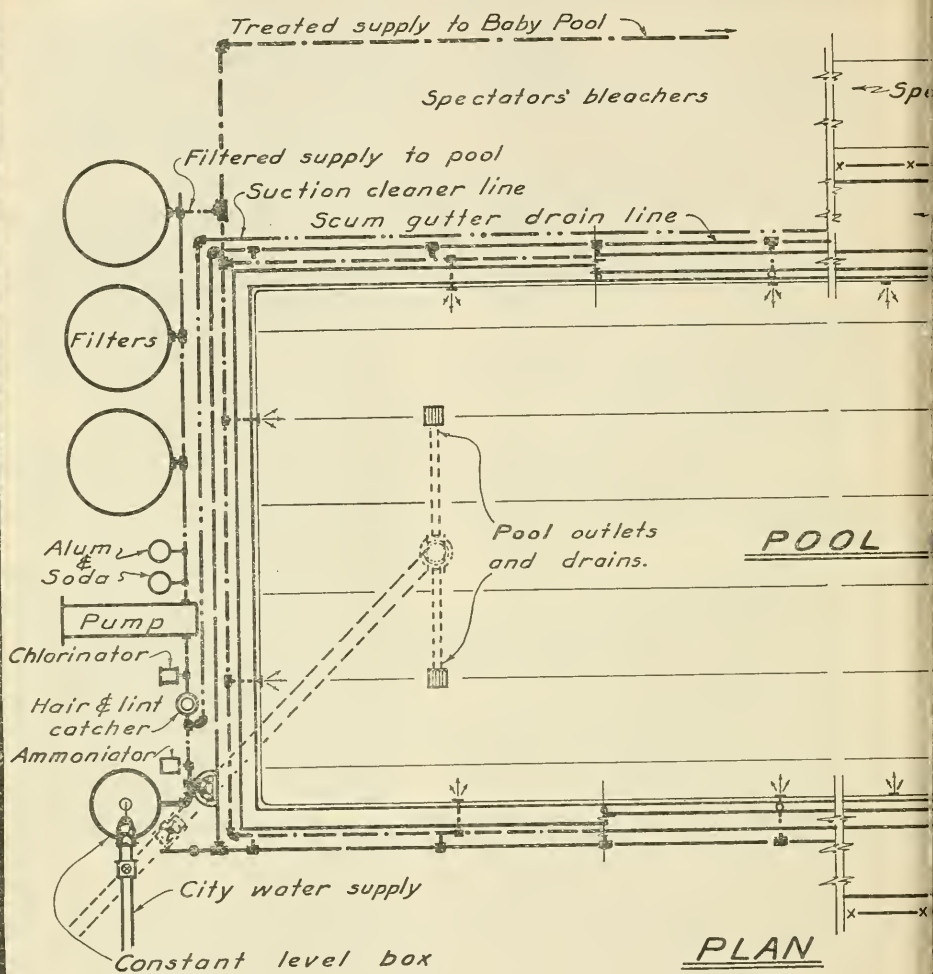 Treated supply to Baby Pool
Spectators' bleachers
Filtered supply to pool
Suction cleaner line
Scum gutter drain line
Filters
Pool outlets
and drains.
POOL
Alum
&
Soda
Pump
Chlorinator
Hair & lint
catcher
Ammoniator
City water supply
Constant level box
PLAN